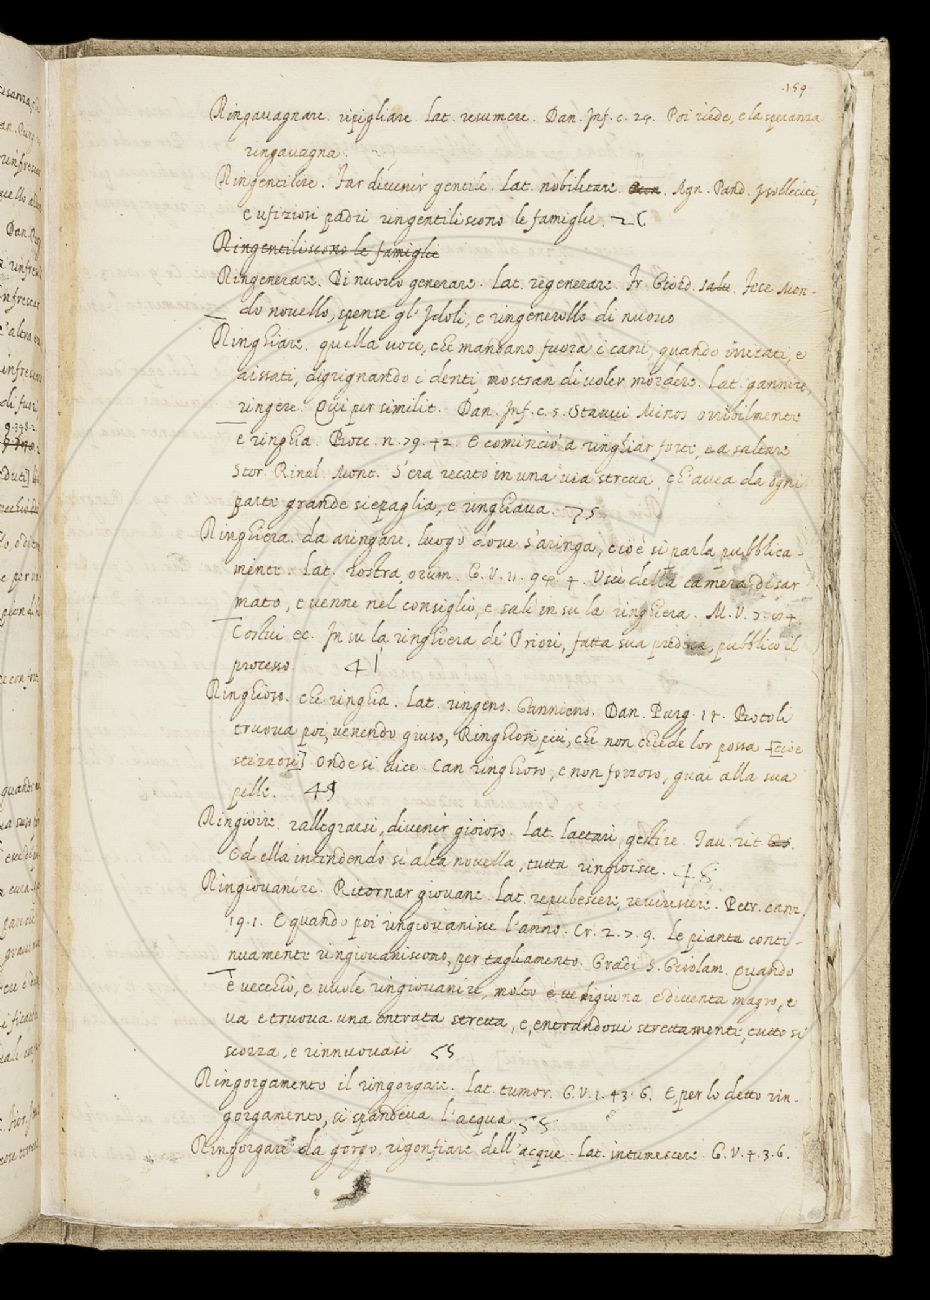 159
Ringavagnare. ripigliare. Lat. resumere. Dan. Inf. c. 24. Poi riede, e la speranza
ringavagna.
Ringentilire. Far divenir gentile. Lat. nobilitare. Agn. Pand. I solleciti,
e ufiziosi padri ringentiliscono le famiglie.
Ringentiliscono le famiglie
Ringenerare. Di nuovo generare. Lat. regenerare. Fr. Giord. salu. Fece Mon-
do novello, spense gl'Idoli, e ringenerollo di nuovo
Ringhiare. quella voce, che mandano fuora i cani, quando irritati, e
aissati, digrignando i denti, mostran di voler mordere. Lat. gannire,
ringere. Qui per similit. Dan. Inf. c. 5. Stavvi Minos orribilmente
e ringhia. Bocc. n. 79. 42. E cominciò a ringhiar forte, e a saltare
Stor. Rinal. Mont. S'era recato in una via stretta, ch'avea da ogni
parte grande siepaglia, e ringhiava.
Ringhiera. da aringare. luogo dove s'aringa, cioè si parla pubblica-
mente. Lat. rostra, orum. G. V. 11. 94. 4. Uscì della camera disar
mato, e venne nel consiglio, e salì in su la ringhiera. M. V.
Costui ec. In su la ringhiera de' Priori, fatta sua predica, pubblicò il
processo. 41
Ringhioso. che ringhia. Lat. ringens. Ganniens. Dan. Purg. 14. Botoli
truova poi, venendo giuso, Ringhiosi più, che non chiede lor possa [cioè
stizzosi] Onde si dice. Can ringhioso, e non forzoso, guai alla sua
pelle.
Ringioire. rallegrarsi, divenir gioioso. Lat. laetari, gestire. Tav. rit.
Ed ella intendendo sì alta novella, tutta ringioisce.
Ringiovanire. Ritornar giovane. Lat. repubescere, revirescere. Petr. canz.
19. 1. E quando poi ringiovanisce l'anno. Cr. 2. 7. 9. Le pianta conti-
nuamente ringiovaniscono, per tagliamento. Gradi S. Girolam. Quando
è vecchio, e vuole ringiovanire, molto e ve digiuna e diventa magro, e
va e truova una entrata stretta, e, entrandovi strettamente, tutto si
scorza, e rinnuovasi
Ringorgamento il ringorgare. Lat. tumor. G. V. 1. 43. 6. E per lo detto rin-
gorgamento, si spandeva l'acqua
Ringorgare da gorgo, rigonfiare dell'acque. Lat. intumescere. G. V. 4. 3. 6.